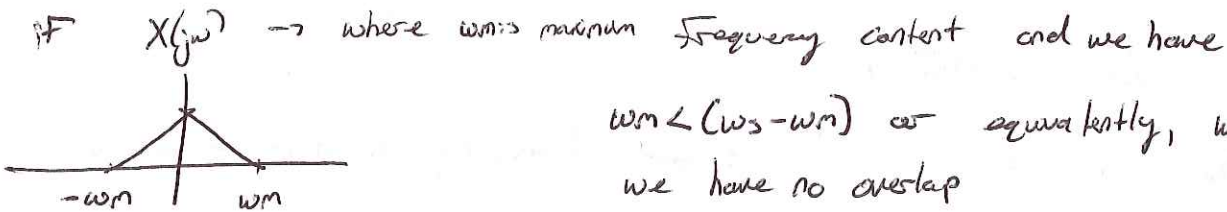 if X(jω) → where ωm is maximum frequency content and we have
ωm < (ωs - ωm) or equivalently,
we have no overlap
-ωm ωm